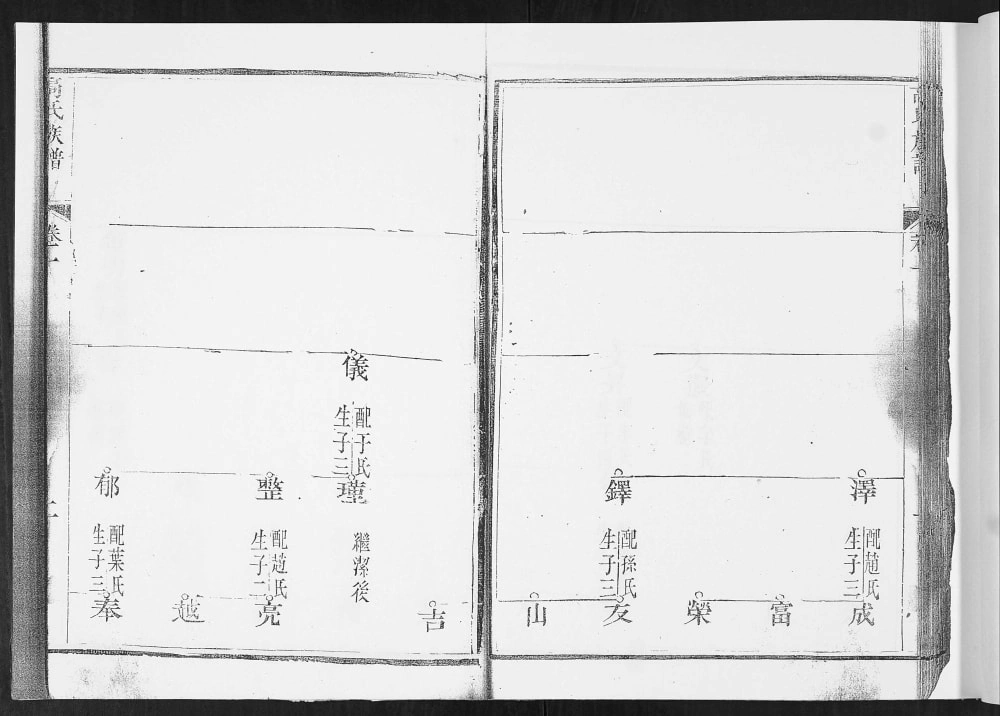 澤
配趙氏
生子三
成
富
榮
鐸
配孫氏
生子三
友
山
吉
儀
配于氏
生子三
瑾
繼潔後
整
配趙氏
生子二
亮
越
郁
配葉氏
生子三
奉
高氏族譜
卷一